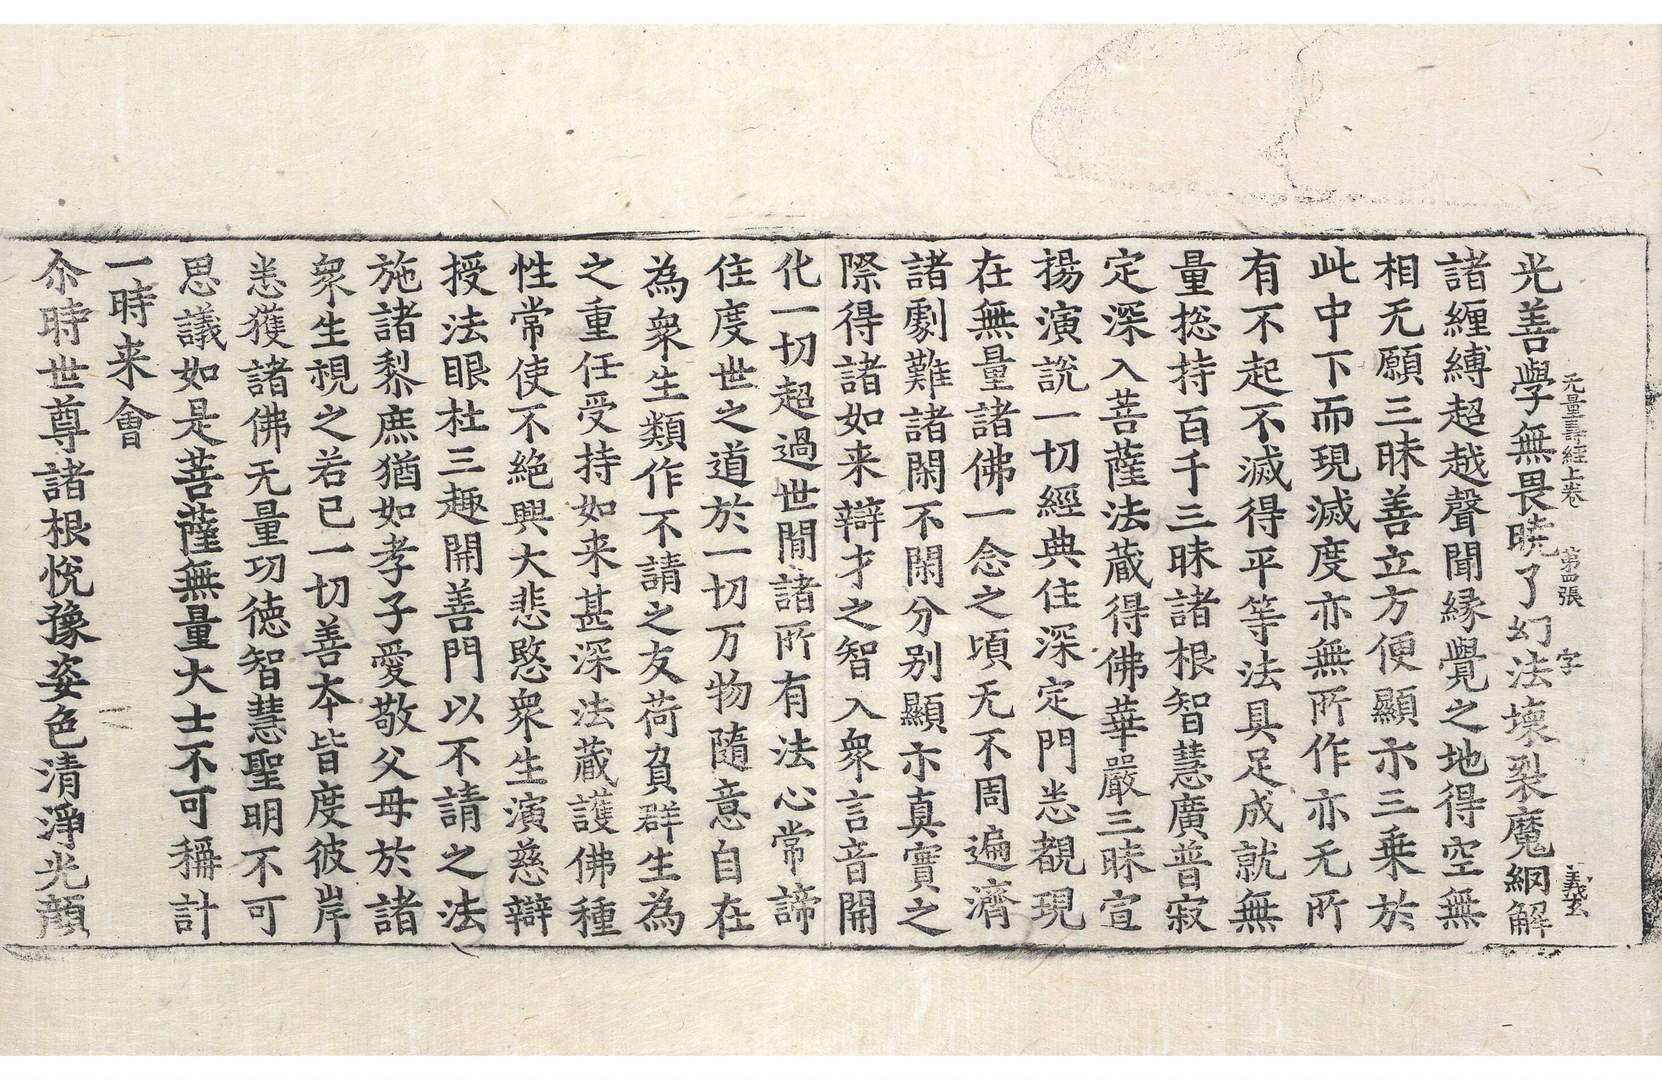 无量壽經上卷 第四張 字 義玄
光善學無畏曉了幻法壞裂魔網解
諸纏縛超越聲聞緣覺之地得空無
相无願三昧善立方便顯示三乗於
此中下而現滅度亦無所作亦无所
有不起不滅得平等法具足成就無
量揔持百千三昧諸根智慧廣普寂
定深入菩薩法蔵得佛華嚴三昧宣
揚演說一切經典住深定門悉覩現
在無量諸佛一念之頃无不周遍濟
諸劇難諸閑不閑分別顯示真實之
際得諸如来辯才之智入衆言音開
化一切超過世閒諸所有法心常諦
住度世之道於一切万物随意自在
為衆生類作不請之友荷負群生為
之重任受持如来甚深法蔵護佛種
性常使不絕興大悲愍衆生演慈辯
授法眼杜三趣開善門以不請之法
施諸黎庶猶如孝子愛敬父母於諸
衆生視之若己一切善本皆度彼岸
悉獲諸佛无量功徳智慧聖明不可
思議如是菩薩無量大士不可稱計
一時来會
尒時世尊諸根悅豫姿色清淨光顔